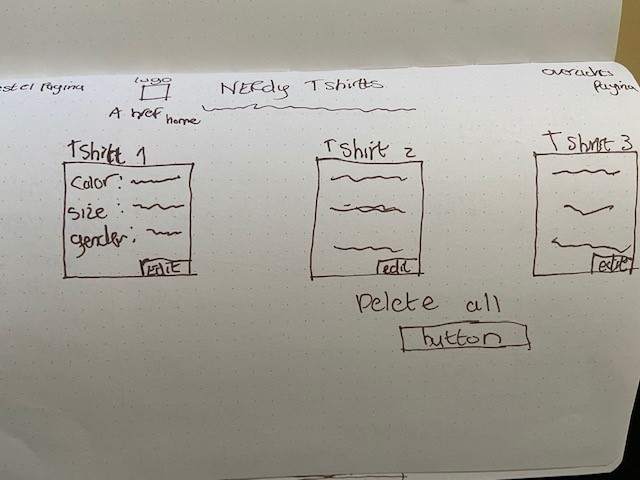 estel Pagina
logo
A href home
NERdy Tshirts
Pagina
Tshirt 1
Color:
size :
gender:
Edit
Tshirt 2
edit
Tshirt 3
edit
Delete all
button